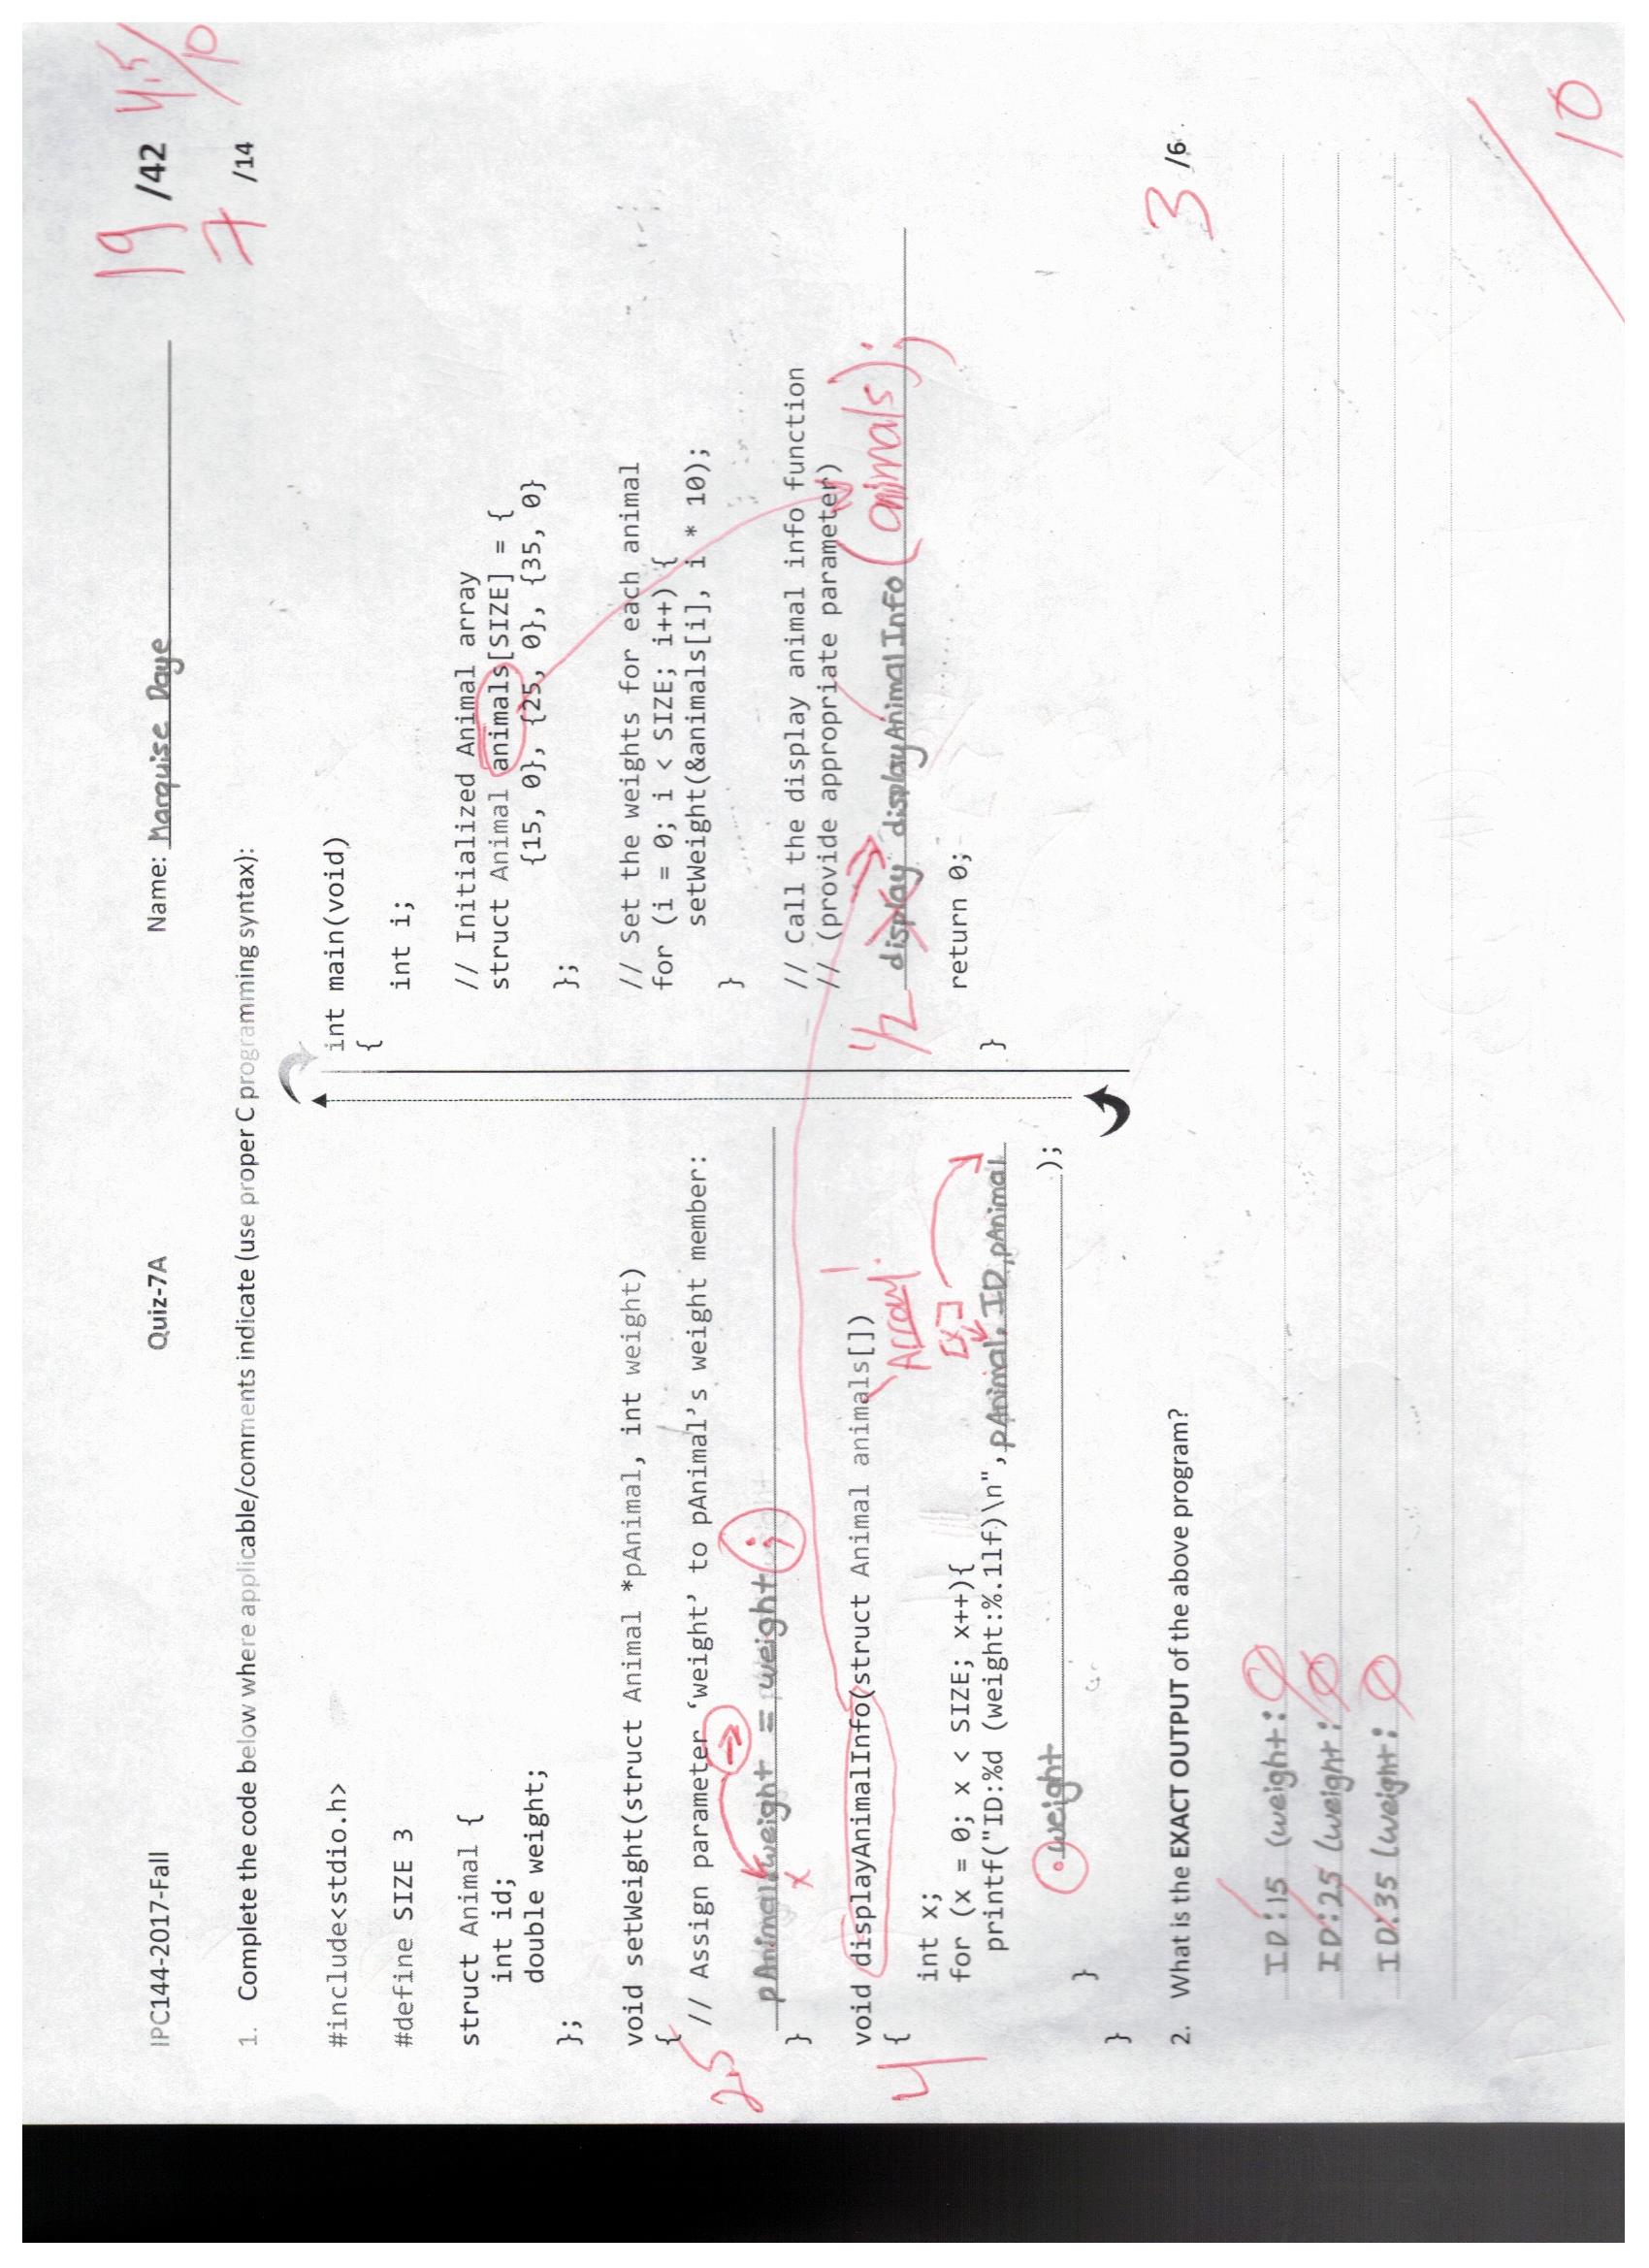 IPC144-2017-Fall Quiz-7A Name: Marquise Daye 19 /42 4.5/10
7 /14
1. Complete the code below where applicable/comments indicate (use proper C programming syntax):
#include<stdio.h>
#define SIZE 3
struct Animal {
int id;
double weight;
};
void setWeight(struct Animal *pAnimal, int weight)
{
// Assign parameter ‘weight’ to pAnimal’s weight member:
2.5
pAnimal.weight = weight ;
x
}
void displayAnimalInfo(struct Animal animals[])
{
4
Array
int x;
for (x = 0; x < SIZE; x++){
[x]
printf("ID:%d (weight:%.1lf)\n", pAnimal. ID, pAnimal
.weight );
}
}
int main(void)
{
int i;
// Initialized Animal array
struct Animal animals[SIZE] = {
{15, 0}, {25, 0}, {35, 0}
};
// Set the weights for each animal
for (i = 0; i < SIZE; i++) {
setWeight(&animals[i], i * 10);
}
// Call the display animal info function
// (provide appropriate parameter)
1/2 display displayAnimalInfo (animals);
return 0;
}
2. What is the EXACT OUTPUT of the above program? 3 /6
ID:15 (weight:
ID:25 (weight:
ID:35 (weight:
/10